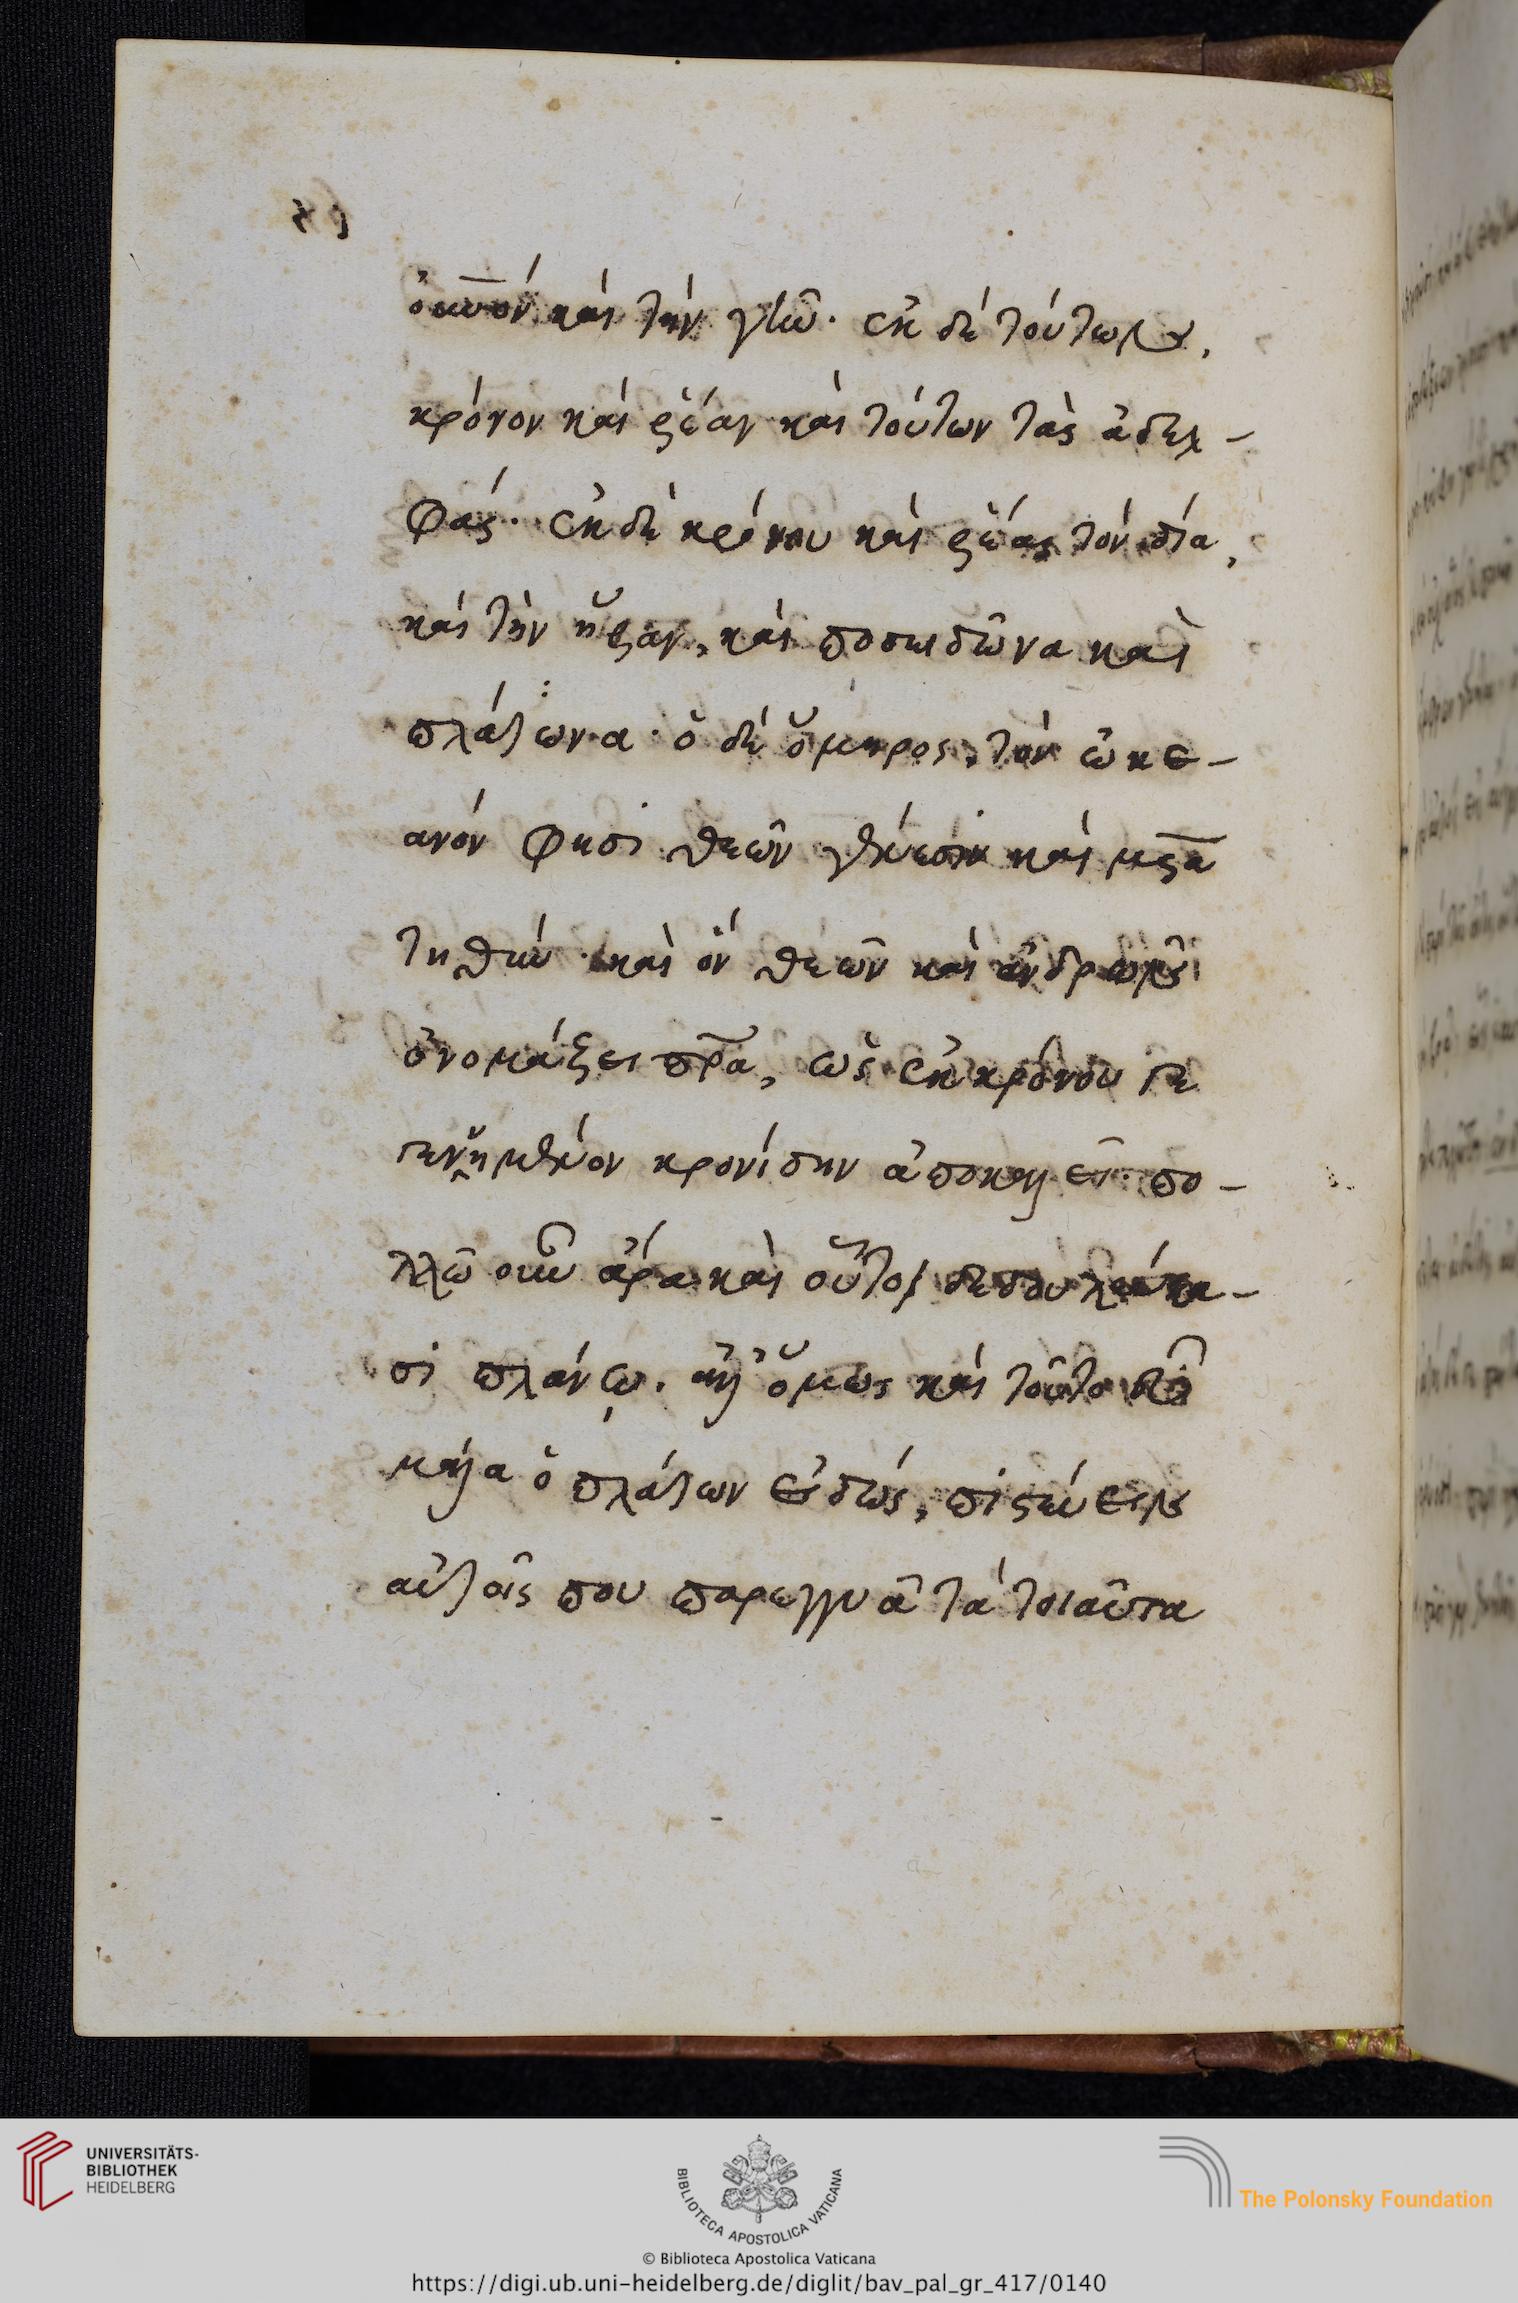 ουνον καὶ τὴν γῆν. ἐκ δὲ τούτων,
κρόνον καὶ ῥέαν καὶ τούτων τὰς ἀδελ-
φάς. ἐκ δὲ κρόνου καὶ ῥέας τὸν δία,
καὶ τὴν ἥραν, καὶ ποσειδῶνα καὶ
πλάτωνα. ὁ δὲ ὅμηρος, τὸν ὠκε-
ανόν φησι θεῶν γένεσιν καὶ μρα
τηθύν. καὶ ὃν θεῶν καὶ ἀνδρῶν
ὀνομάζει πρα, ὡς ἐκ κρόνου γε
γεννημένον κρονίδην ἀποκαλεῖ. πο-
λλῷ οὖν ἄρα καὶ οὗτοι δεδουλεύκα-
σι πλάνῳ. ἀλλ' ὅμως καὶ τοῦτο
μάλα ὁ πλάτων εἰδώς, πιστεύειν
αὐτοῖς που παρεγγυᾷ τὰ τοιαῦτα
UNIVERSITÄTS-
BIBLIOTHEK
HEIDELBERG
BIBLIOTECA APOSTOLICA VATICANA
The Polonsky Foundation
© Biblioteca Apostolica Vaticana
https://digi.ub.uni-heidelberg.de/diglit/bav_pal_gr_417/0140